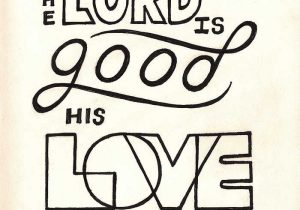 THE LORD IS
good
HIS
LOVE